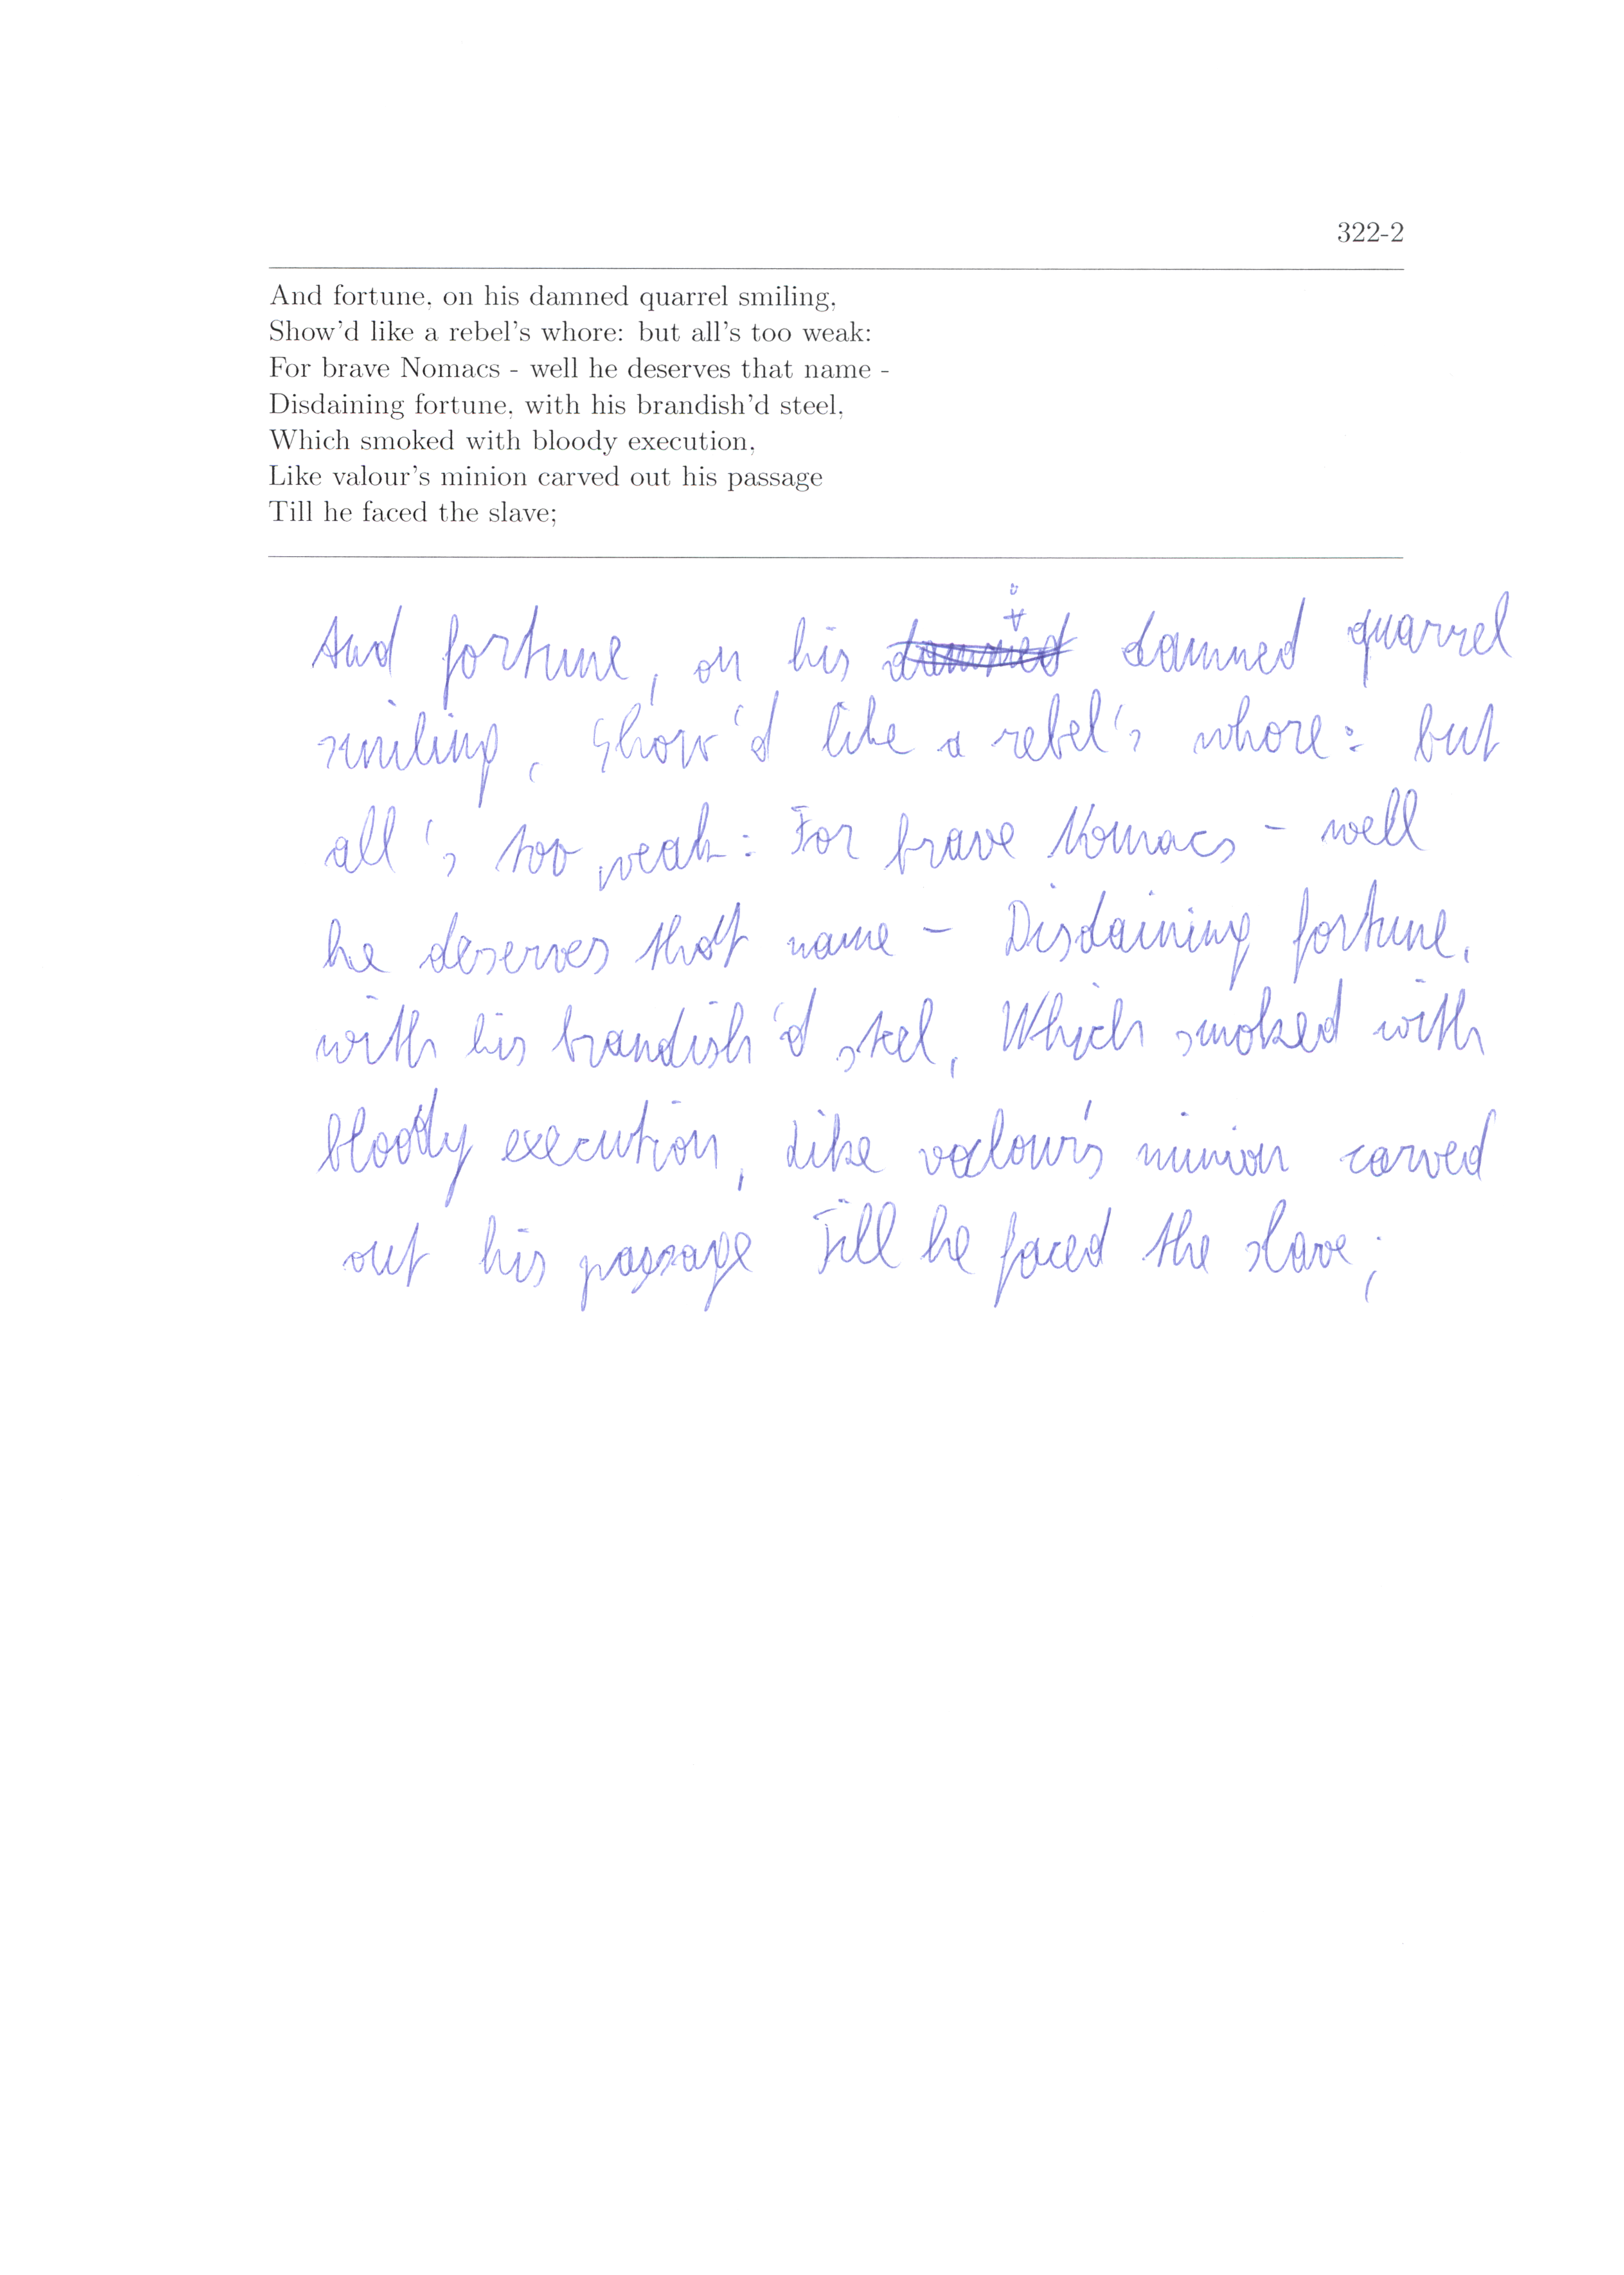 322-2
And fortune, on his damned quarrel smiling,
Show'd like a rebel's whore: but all's too weak:
For brave Nomacs - well he deserves that name -
Disdaining fortune, with his brandish'd steel,
Which smoked with bloody execution,
Like valour's minion carved out his passage
Till he faced the slave;
And fortune, on his damned quarrel
smiling, Show'd like a rebel's whore: but
all's too weak: For brave Nomacs - well
he deserves that name - Disdaining fortune,
with his brandish'd steel, Which smoked with
bloody execution, Like valour's minion carved
out his passage Till he faced the slave;